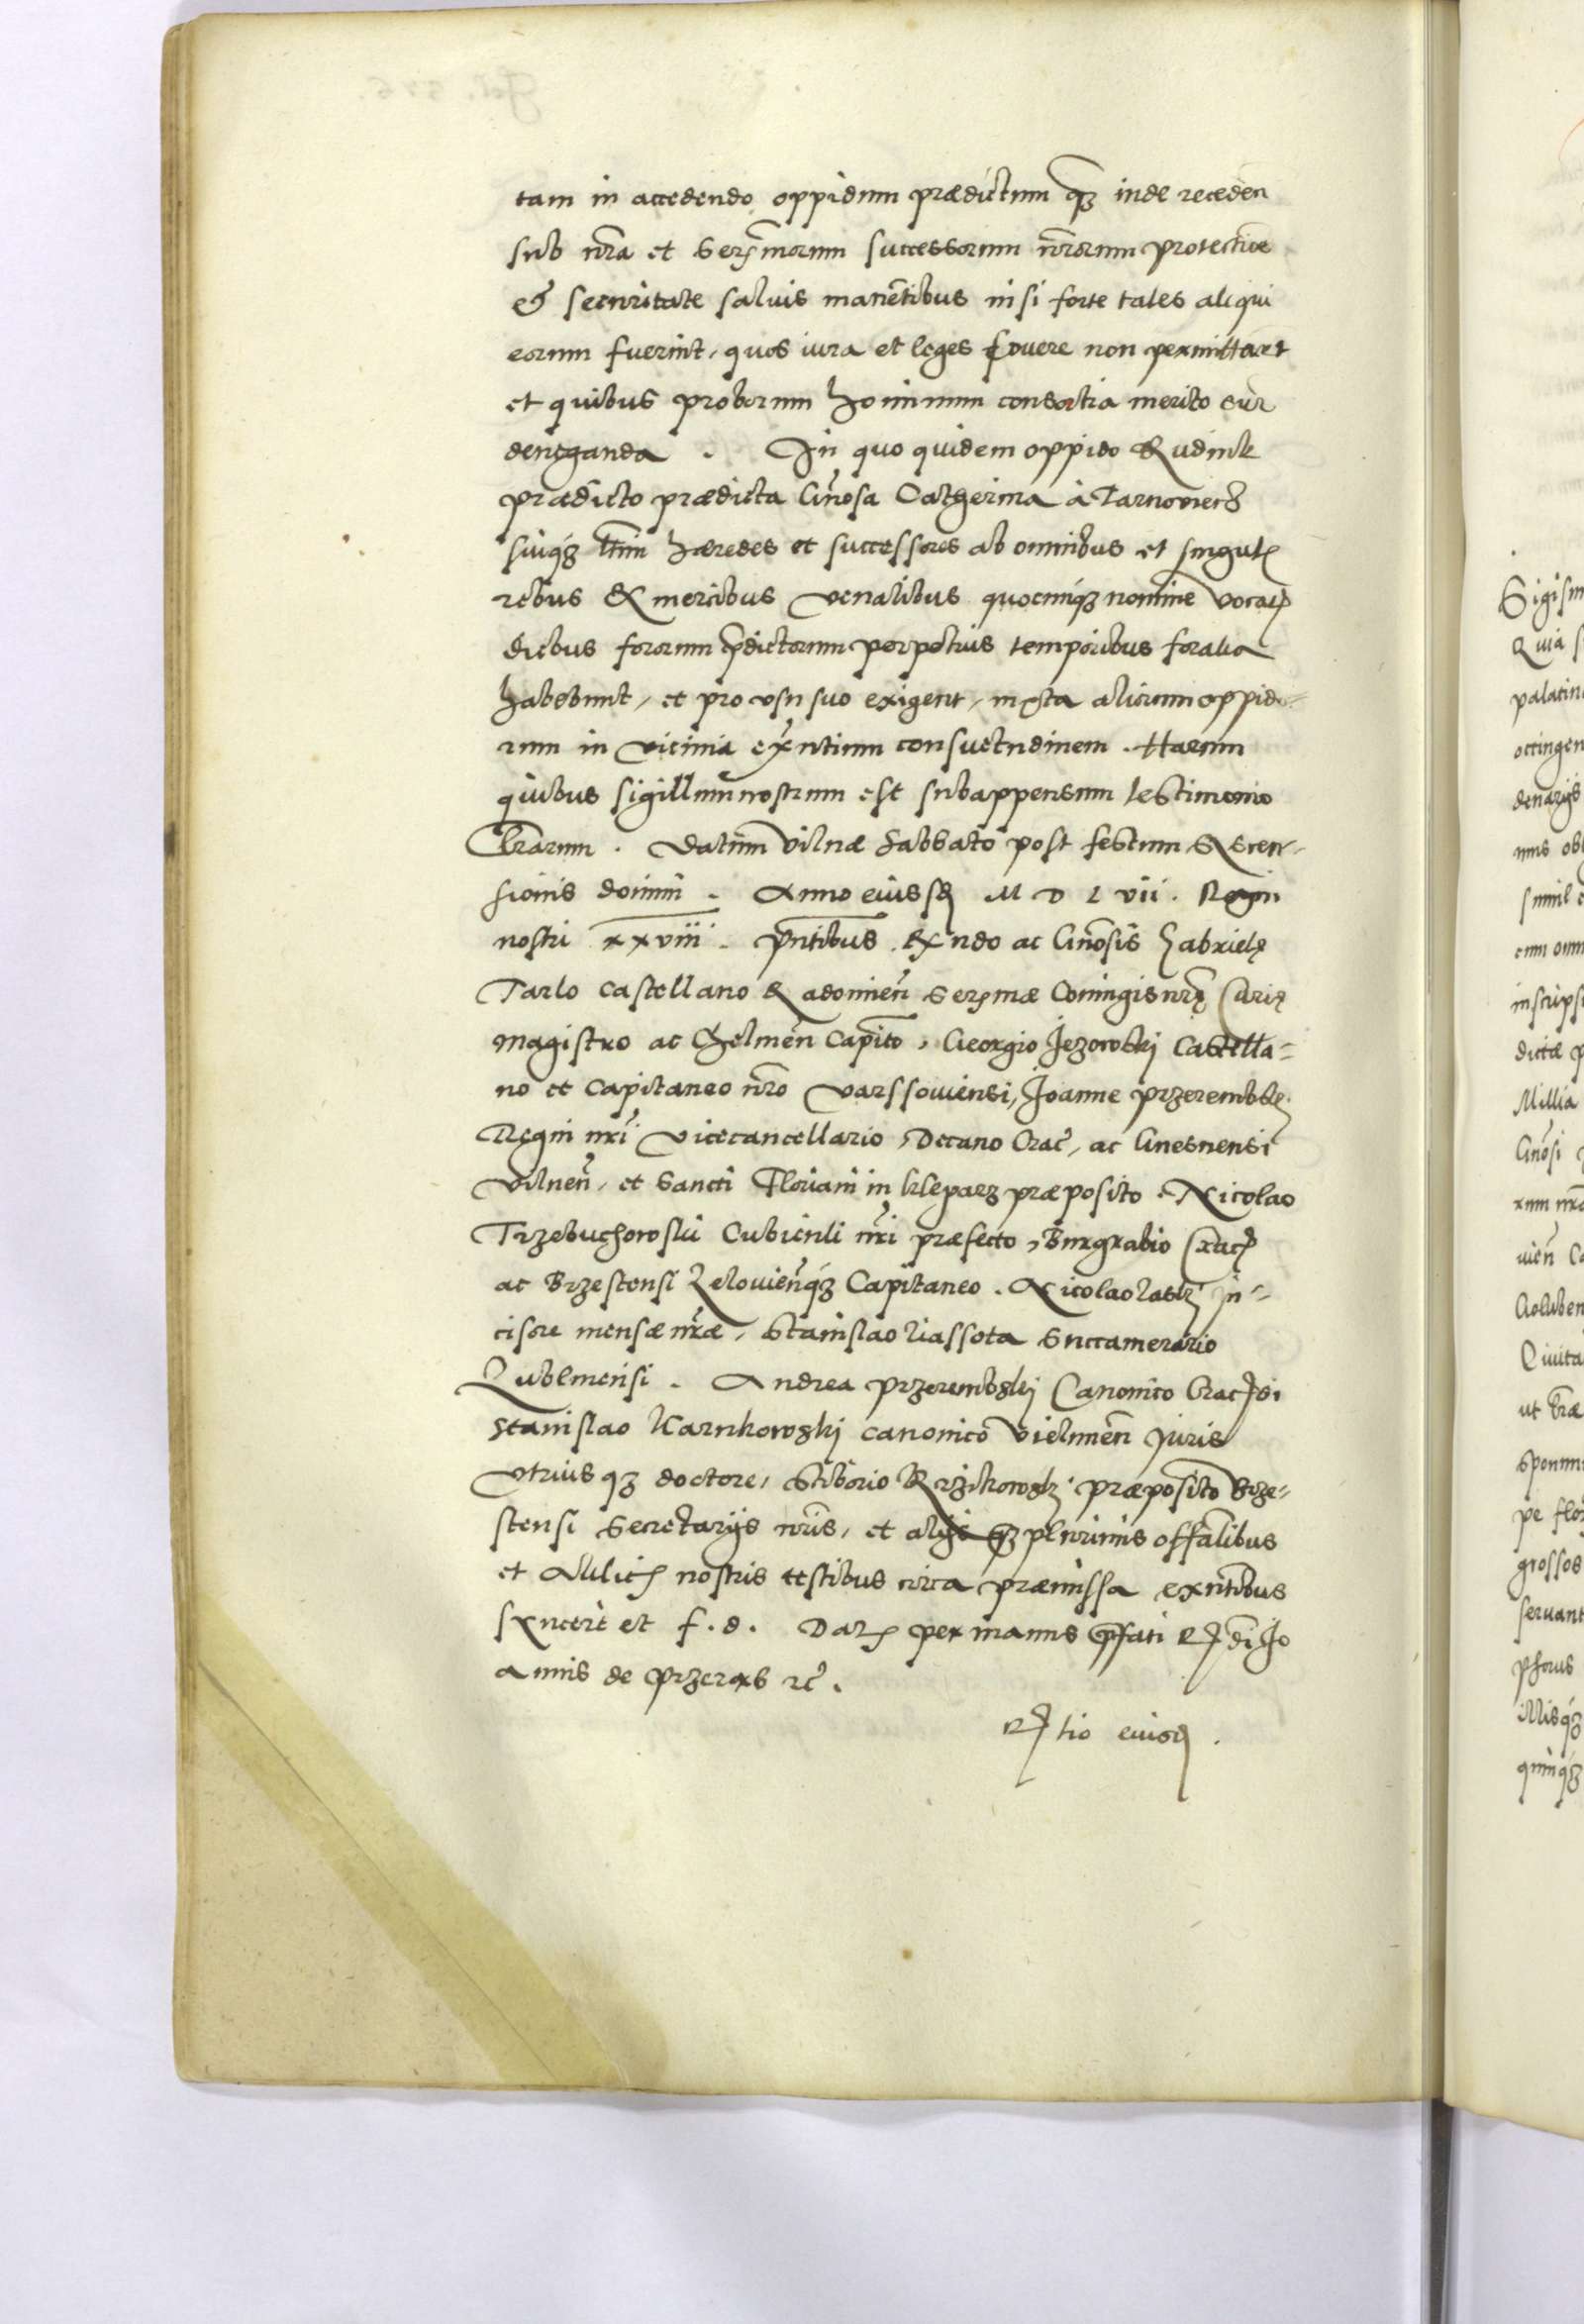 tam in accedendo oppidum prædictum qz inde receden
sub nra et Sersmorum successorum nrorum protectione
et securitate saluis manētibus nisi forte tales aliqui
eorum fuerint, quos iura et leges fouere non permittant
et quibus proborum hominum consortia merito sūt
deneganda. In quo quidem oppido Rudnik
prædicto prædicta Gnosa Catherina à Tarnowiecz
suiqz ltimi hæredes et successores ab omnibus et singul
rebus & mercibus venalibus quocunqz nomine vocat
diebus fororum pdictorum perpetuis temporibus foralia
habebunt, et pro vsu suo exigent, iuxta aliorum oppido=
rum in vicinia exntium consuetudinem. Harum
quibus sigillum nostrum est subappensum testimonio
lrarum. Datum Vilnæ Sabbato post festum Ascen-
sionis domini. Anno eiusd M D L vii. Regni
nostri xxviii. pntibus Rx ndo ac Gnosis Gabriele
Tarlo Castellano Radomien Sersmæ Coniugis nrę Curię
Magistro ac Chelmen Capito, Georgio Jezowski Castella=
no et Capitaneo nro Varssouiensi, Joanne Przerembski
Regni nri Vicecancellario, Decano Crac, ac Gnesnensi
Vilnen, et Sancti Floriani in Kleparz præposito. Nicolao
Trzebuchowski Cubiculi nri præfecto, Burgrabio Crac
ac Brzestensi Lelouienqz Capitaneo. Nicolao Laski in=
cisore mensæ nræ, Stanislao Liassota Succamerario
Lublinensi. Andrea Przerembski Canonico Cracsi
Stanislao Karnkowski canonico Vielunen Juris
Vtriusqz doctore, Stiborio Rzikowski præposito Brze=
stensi Secretariis nris, et aliis qz plurimis offalibus
et Aulicis nostris testibus circa præmissa exntibus
syncere et f. d. Dat per manus pfati Rndi Jo
annis de Przeręb rc.
Rtio eiusd.

Sigism
Quia
palatin
octingen
denariis
mus obl
simil
cum omn
inscrips
dictæ p
Millia
Gnosi
rum nra
uien
Golube
Ciuita
ut lræ
grossos
seruant
phorus
illisqz
quinqz